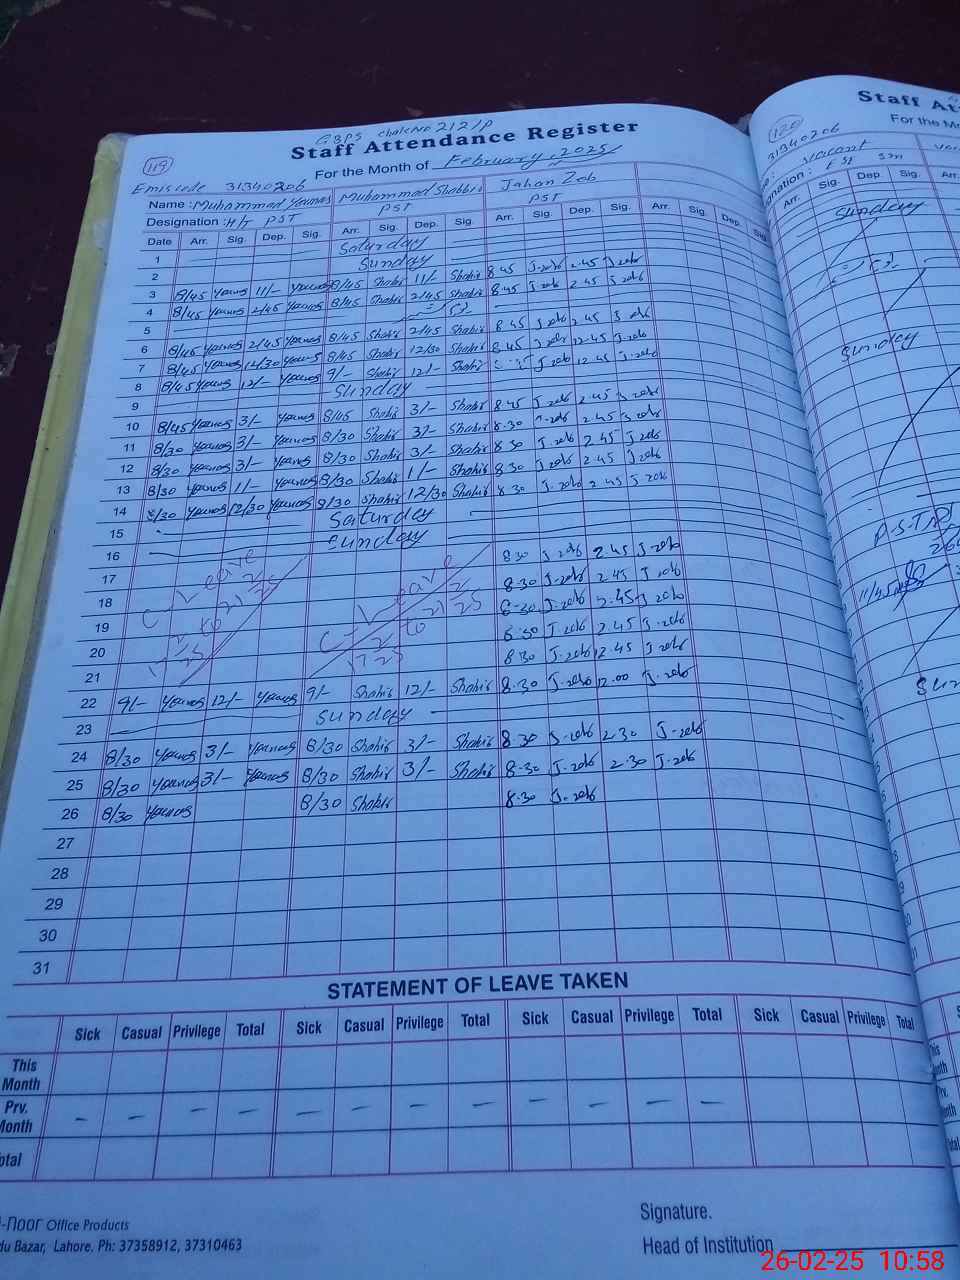 GBPS chak No 212/P
Staff Attendance Register
119
For the Month of February, 2025
Emis code 31340206
Name : Muhammad Younas Muhammad Shabbir Jahan Zeb
Designation : H/T PST PST PST
Date Arr. Sig. Dep. Sig. Arr. Sig. Dep. Sig. Arr. Sig. Dep. Sig. Arr. Sig. Dep. Sig.
1 Saturday
2 Sunday
3 8/45 Younas 11/- Younas 8/45 Shabir 11/- Shabir 8.45 J.zeb 2.45 J.zeb
4 8/45 Younas 2/45 Younas 8/45 Shabir 2/45 Shabir 8.45 J.zeb 2.45 J.zeb
5
6 8/45 Younas 2/45 Younas 8/45 Shabir 2/45 Shabir 8.45 J.zeb 2.45 J.zeb
7 8/45 Younas 12/30 Younas 8/45 Shabir 12/30 Shabir 8.45 J.zeb 12.45 J.zeb
8 8/45 Younas 12/- Younas 9/- Shabir 12/- Shabir J.zeb 12.45 J.zeb
9 Sunday
10 8/45 Younas 3/- Younas 8/45 Shabir 3/- Shabir 8.45 J.zeb 2.45 J.zeb
11 8/30 Younas 3/- Younas 8/30 Shabir 3/- Shabir 8.30 J.zeb 2.45 J.zeb
12 8/30 Younas 3/- Younas 8/30 Shabir 3/- Shabir 8.30 J.zeb 2.45 J.zeb
13 8/30 Younas 11/- Younas 8/30 Shabir 11/- Shabir 8.30 J.zeb 2.45 J.zeb
14 8/30 Younas 12/30 Younas 8/30 Shabir 12/30 Shabir 8.30 J.zeb 2.45 J.zeb
15 Saturday
16 Sunday
17 8.30 J.zeb 2.45 J.zeb
18 C-Leave C-Leave 8.30 J.zeb 2.45 J.zeb
19 to to 8.30 J.zeb 2.45 J.zeb
20 8.30 J.zeb 2.45 J.zeb
21 8.30 J.zeb 12.45 J.zeb
22 9/- Younas 12/- Younas 9/- Shabir 12/- Shabir 8.30 J.zeb 12.00 J.zeb
23 Sunday
24 8/30 Younas 3/- Younas 8/30 Shabir 3/- Shabir 8.30 J.zeb 2.30 J.zeb
25 8/30 Younas 3/- Younas 8/30 Shabir 3/- Shabir 8.30 J.zeb 2.30 J.zeb
26 8/30 Younas 8/30 Shabir 8.30 J.zeb
27
28
29
30
31
STATEMENT OF LEAVE TAKEN
Sick Casual Privilege Total Sick Casual Privilege Total Sick Casual Privilege Total Sick Casual Privilege Total
This Month
Prv. Month - - - - - - - - - - - -
otal
-noor Office Products
du Bazar, Lahore. Ph: 37358912, 37310463
Signature.
Head of Institution
120
Staff At
For the Mo
31340206
vacant
gnation : EST
Arr. Sig. Dep. Sig. Arr.
Sunday
Sunday
11/45
26-02-25 10:58